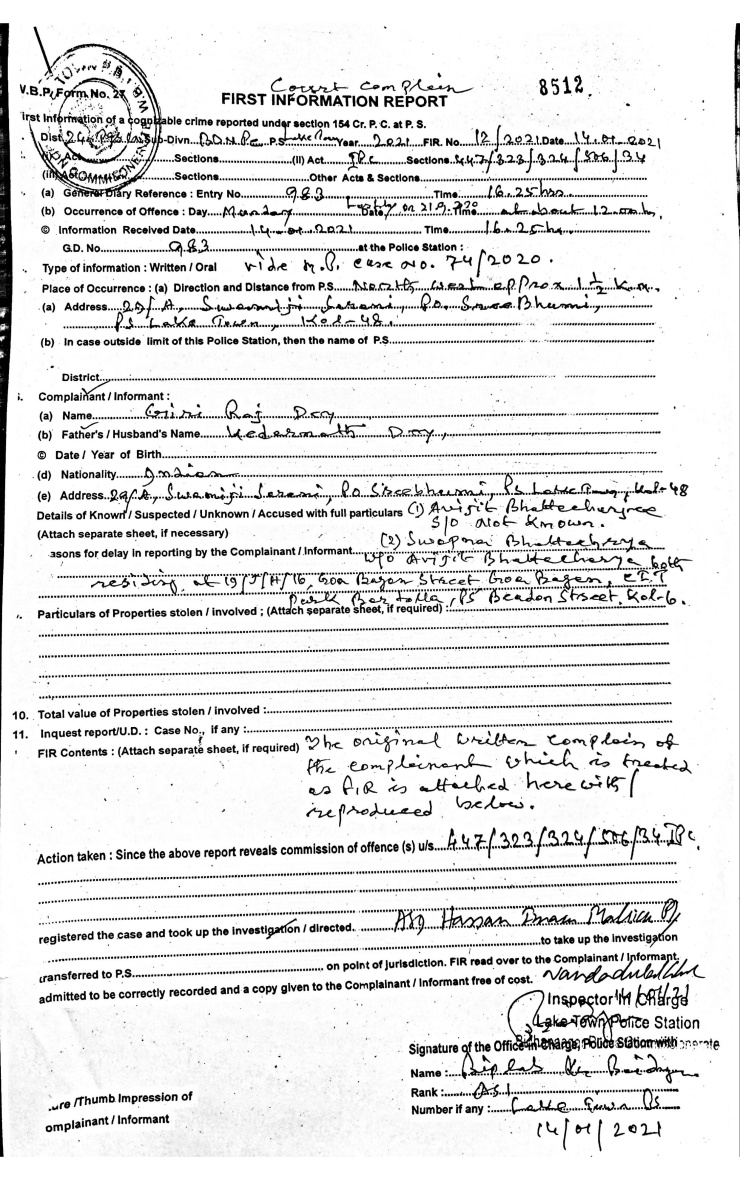 Court Complain
8512
W.B.P. Form No. 27
FIRST INFORMATION REPORT
irst Information of a cognizable crime reported under section 154 Cr. P. C. at P. S.
Dist. 24 Pgs (N) Sub-Divn. B.D.N. P.C. P.S. Lake Town Year 2021 FIR. No. 12/2021 Date 14.01.2021
(i) Act Sections (II) Act IPC Sections 447/323/324/506/34
(iii) Act Sections Other Acts & Sections
(a) General Diary Reference : Entry No. 983 Time 16.25 hrs
(b) Occurrence of Offence : Day Munday Date on 21.9.2020 Time at about 12.00 h.
© Information Received Date 14.01.2021 16.25 hr.
G.D. No. 983 at the Police Station :
Type of information : Written / Oral vide M.P. case no. 74/2020.
Place of Occurrence : (a) Direction and Distance from P.S. North West approx 1 ½ K.m.
(a) Address 29/A, Swamiji Sarani, P.O. Sree Bhumi,
PS Lake Town, Kol-48.
(b) In case outside limit of this Police Station, then the name of P.S.
District
Complainant / Informant :
(a) Name Giri Raj Dey
(b) Father's / Husband's Name Kedarnath Dey,
© Date / Year of Birth
(d) Nationality Indian
(e) Address 29/A, Swamiji Sarani, PO Sreebhumi, PS Lake Town, Kol-48
Details of Known / Suspected / Unknown / Accused with full particulars (1) Avijit Bhattecharjee
S/o Not Known.
(Attach separate sheet, if necessary)
(2) Swapna Bhattecherya
asons for delay in reporting by the Complainant / Informant W/o Avijit Bhattecherya both
residing at 19/J/H/16, Goa Bagan Street Goa Bagan, CIT
Park Bartolla, PS Beadon Street, Kol-6.
Particulars of Properties stolen / involved ; (Attach separate sheet, if required) :
10. Total value of Properties stolen / involved :
11. Inquest report/U.D. : Case No., if any :
FIR Contents : (Attach separate sheet, if required) The original written complain of
the complainant which is treated
as FIR is attached herewith/
reproduced below.
Action taken : Since the above report reveals commission of offence (s) u/s. 447/323/324/506/34 IPC.
registered the case and took up the investigation / directed. ASI Hassan Imam Mallick
to take up the investigation
transferred to P.S. on point of jurisdiction. FIR read over to the Complainant / Informant,
admitted to be correctly recorded and a copy given to the Complainant / Informant free of cost.
Inspector In Charge
Lake Town Police Station
Signature of the Office-in-Charge, Police Station with
Name : Biplab Kr Baidya
Rank : ASI
Number if any : Lake Town PS
14/01/2021
ure /Thumb Impression of
omplainant / Informant